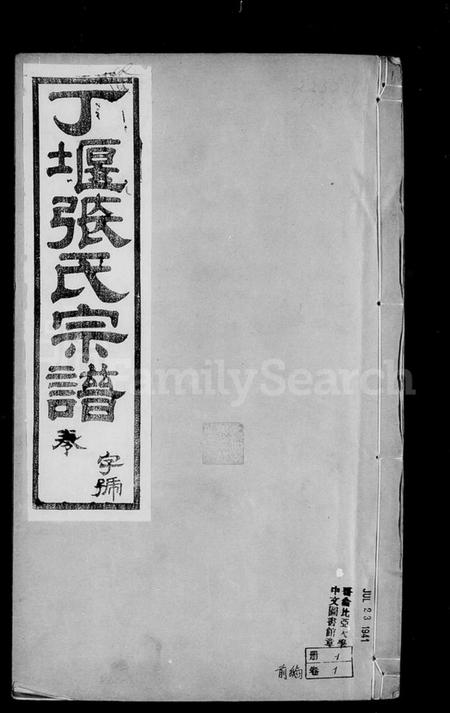 丁堰張氏宗譜
卷
字號
FamilySearch
哥倫比亞大學
中文圖書館章
JUL 23 1941
冊 1
卷 1
前編